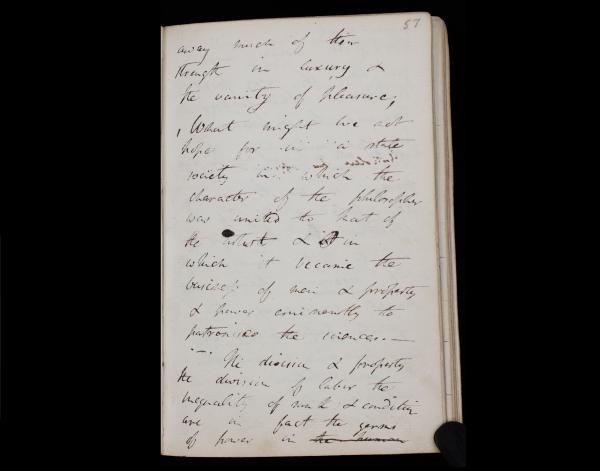 57
away much of their
strength in luxury &
the vanity of pleasure;
What might we not
hope for in a state
society in which the
character of the philosopher
was united to that of
the artist & in
which it became the
business of men & property
& power eminently to
patronise the sciences. —
— The division & property
the division of labor the
inequality of rank & condition
are in fact the germs
of power in the human